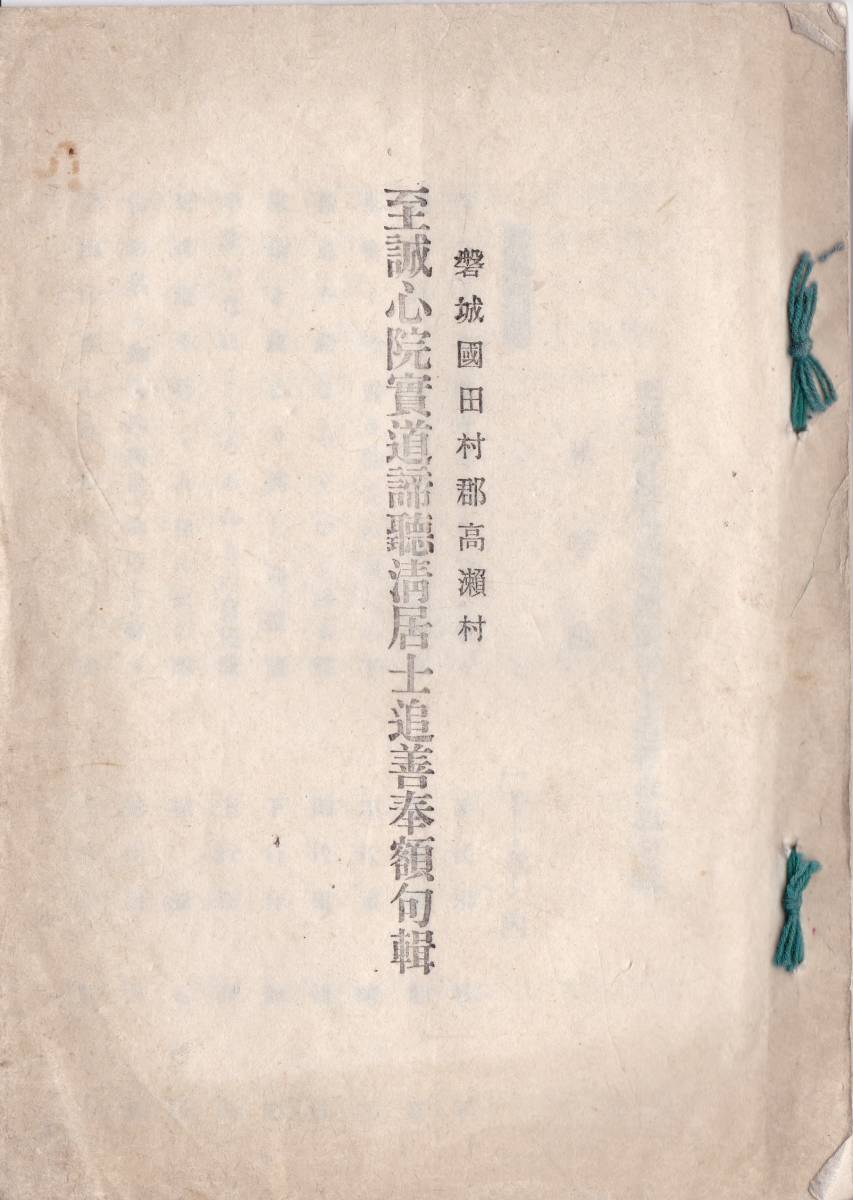 磐城國田村郡高瀨村
至誠心院實道諦聽淸居士追善奉額句輯